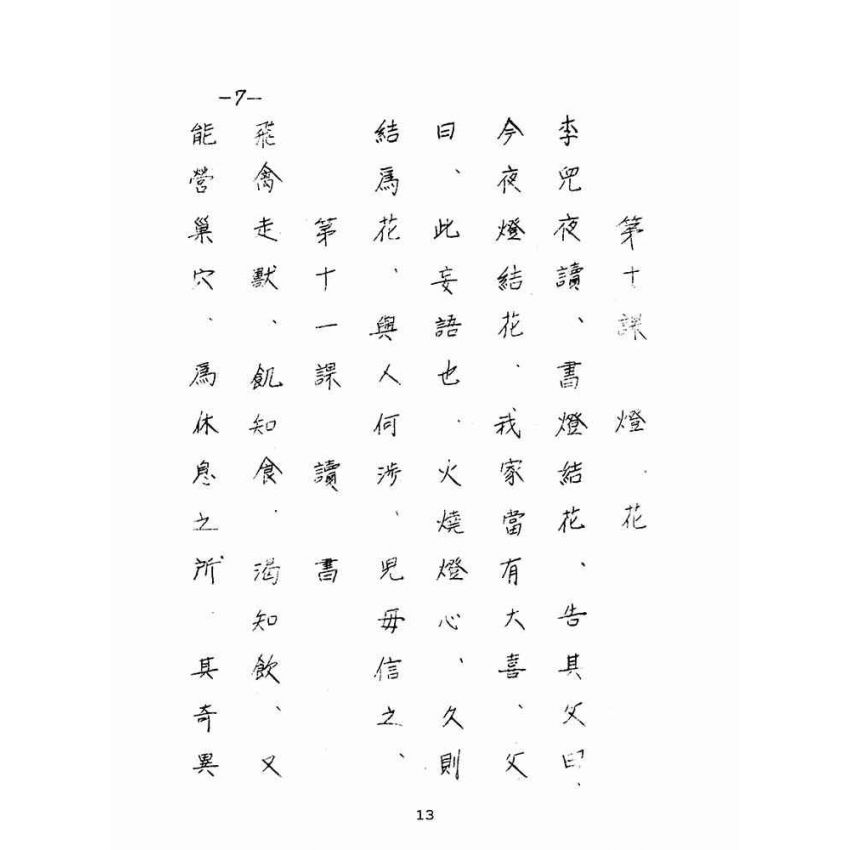 第十課 燈 花
李兒夜讀、書燈結花、告其父曰、
今夜燈結花、我家當有大喜、父
曰、此妄語也、火燒燈心、久則
結爲花、與人何涉、兒毋信之、
第十一課 讀 書
飛禽走獸、飢知食、渴知飲、又
能營巢穴、爲休息之所、其奇異
-7-
13